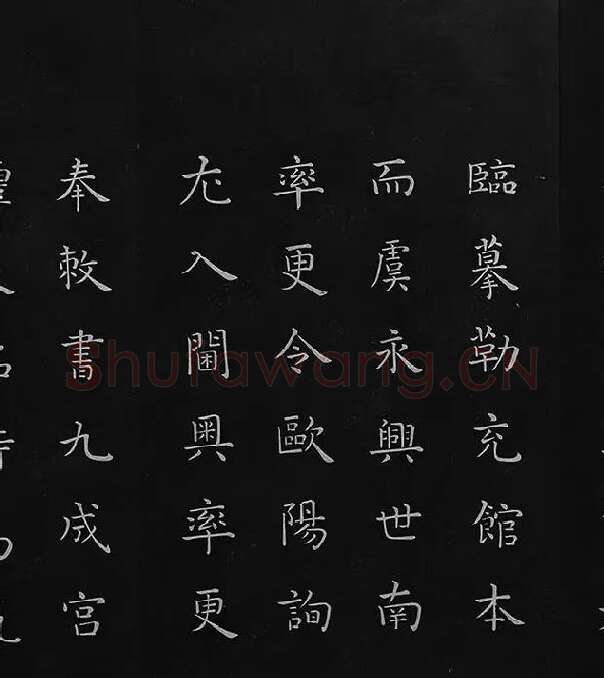 臨摹勒充館本
而虞永興世南
率更令歐陽詢
尤入閫奧率更
奉敕書九成宮
Shufawang.CN